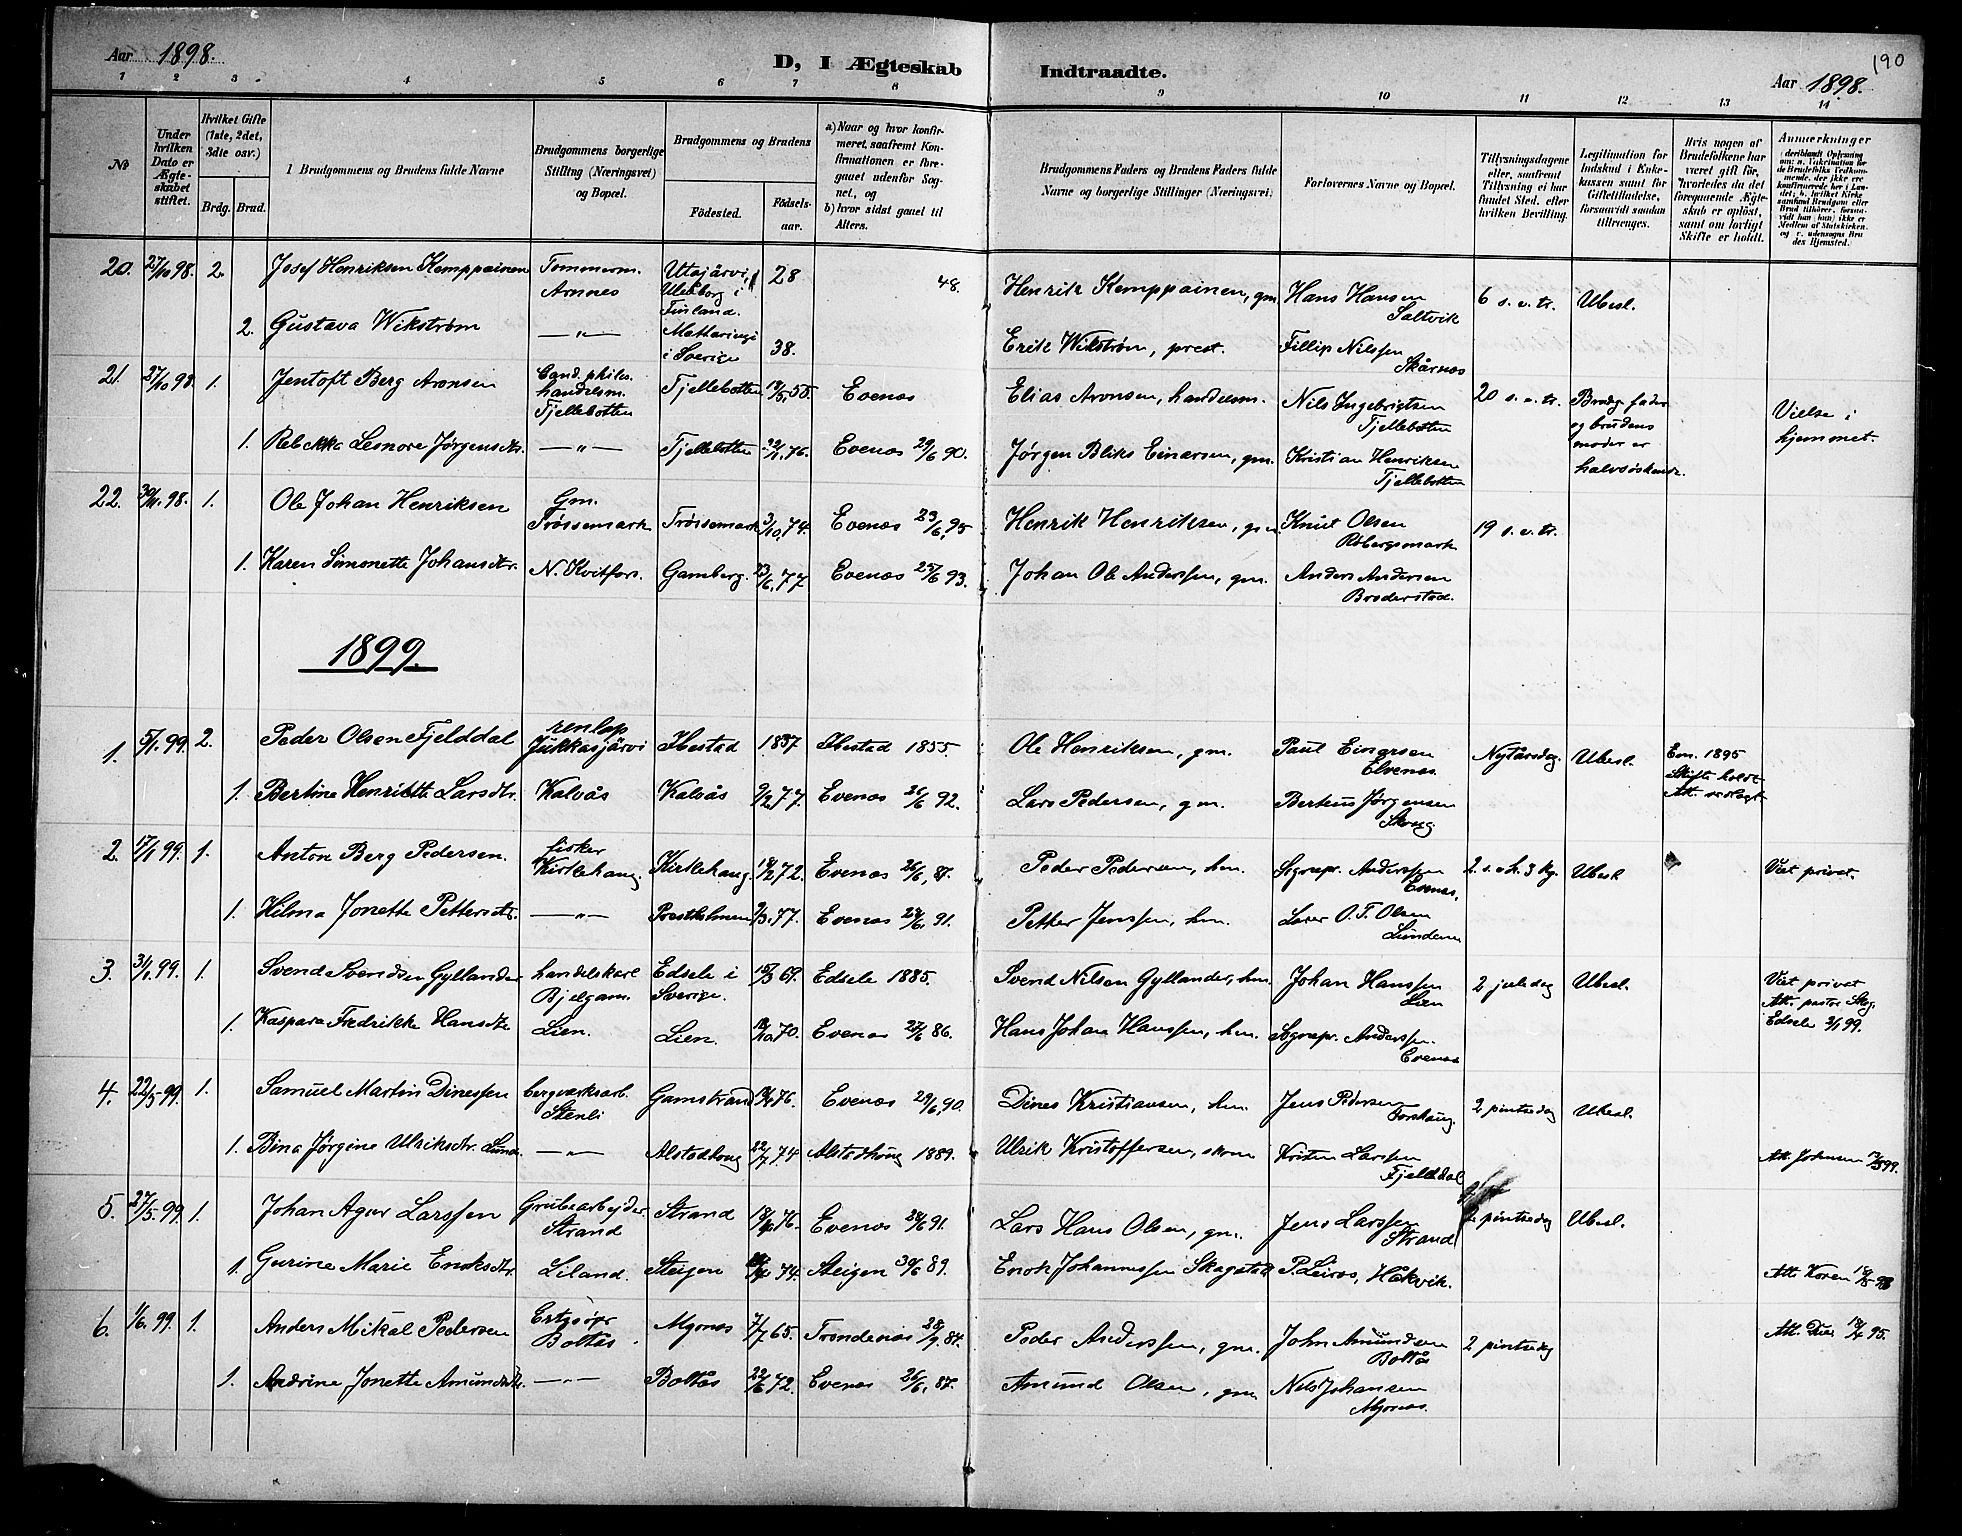 Aar 1898.
D, I Ægteskab Indtraadte.
Aar 1898.
190
1 2 3 4 5 6 7 8 9 10 11 12 13 14
No
Under hvilken Dato er Ægteskabet stiftet.
Hvilket Gifte (1ste, 2det, 3die osv.)
Brdg. Brud.
Brudgommens og Brudens fulde Navne
Brudgommens borgerlige Stilling (Næringsvei) og Bopæl.
Brudgommens og Brudens
Fødested. Fødselsaar.
a) Naar og hvor konfirmeret, saafremt Konfirmationen er foregaaet udenfor Sognet, og
b) hvor sidst gaaet til Alters.
Brudgommens Faders og Brudens Faders fulde Navne og borgerlige Stillinger (Næringsvei)
Forlovernes Navne og Bopæl.
Tillysningsdagene eller, saafremt Tillysning ei har fundet Sted, efter hvilken Bevilling.
Legitimation for Indskud i Enkekassen samt for Giftetilladelse, forsaavidt saadan tiltrænges.
Hvis nogen af Brudefolkene har været gift før, hvorledes da det foregaaende Ægteskab er opløst, samt om lovligt Skifte er holdt.
Anmærkninger
20. 27/10 98. 2. Josef Henriksen Kemppainen Tømmerm. Arnnes Utajärvi, Uleåborg i Finland. 28 48. Henrik Kemppainen, gm. Hans Hansen Saltvik 6 s. e. tr. Ubesl.
2. Gustava Wikstrøm —"— Mattaringi i Sverige 38. Erik Wikstrøm, prest. Fillip Nilssen Skårnes
21. 27/10 98. 1. Jentoft Berg Aronsen Cand. philos. handelsm. Fjellebotten Fjellebotten 18/5, 55 Evenes Elias Aronsen, handelsm. Nils Ingebrigtsen Fjellebotten 20 s. e. tr. Brudg. fader og brudens moder er halvsøskende. Vielse i hjemmet.
1. Rebekka Lenore Jørgensdtr. —"— Fjellebotten 22/11, 76. Evenes 29/6 90. Jørgen Bliks Einarsen, gm. Kristian Henriksen Fjellebotten
22. 30/11. 98. 1. Ole Johan Henriksen Gm. Trøssemark Trøssemark 3/10, 74. Evenes 23/6, 95 Henrik Henriksen, gm Knut Olsen Robergsmark 19 s. e. tr.
1. Karen Simonette Johansdtr. N. Kvitfors. Gamberg. 23/6, 77 Evenes 25/6 93. Johan Ole Anderssen, gm. Anders Andersen Broderstad.
1899.
1. 5/1. 99. 2. Peder Olsen Fjelddal renlap Jukkasjärvi Ibestad 1837 Ibestad 1855 Ole Henriksen, gm. Paul Einarsen Elvenes. Nytårsdag. Ubesl. Em. 1895 Skifte holdt Att. vedlagt
1. Bertine Henriette Larsdtr. Kalvås Kalvås 9/2 77. Evenes 26/6 92. Lars Pedersen, gm. Berteus Jørgensen Skoug
2. 17/1 99. 1. Anton Berg Pedersen. fisker Kirkehaug Kirkehaug. 18/2 72. Evenes 26/6, 87. Peder Pedersen, hm. Sognepr. Anderssen Evenes. 2. s. e h. 3 kg. Ubesl. Viet privat.
1. Hilma Jonette Pettersdtr. —"— Prestholmen 9/3. 77. Evenes 28/6, 91. Petter Jenssen, hm. Lærer O. T. Olsen Lundenes
3. 31/1. 99. 1. Svend Svendsen Gyllander handelskarl Bjelgam. Edsele i Sverige. 15/3 68. Edsele 1885. Svend Nilsen Gyllander, hm. Johan Hanssen Lien 2 juledag Ubesl. Viet privat Att. pastor Skog. Edsele 2/1 99.
1. Kaspara Fredrikke Hansdtr Lien. Lien. 18/10 70. Evenes 27/6 86. Hans Johan Hanssen, hm. Sognepr. Anderssen. Evenes
4. 22/5 99. 1. Samuel Martin Dinessen bergverksarb. Stenli Gamstrand 76. Evenes 29/6, 90. Dines Kristiansen, hm. Jens Pedersen Forshaug. 2 pintsedag Ubesl.
1. Bina Jørgine Ulriksdtr. Lund. —"— Alstadhoug 22/7 74 Alstadhoug 1889. Ulrik Kristoffersen, skom Kristen Larssen Fjelldal Att. Johnsen 99.
5. 27/5. 99. 1. Johan Ager Larssen Grubearbejder. Strand Strand 76. Evenes 28/6 91. Lars Hans Olsen, gm. Jens Larssen Strand 2 pintsedag Ubesl.
1. Gurine Marie Enoksdtr. Liland. Steigen 74. Steigen 30/6 89. Enok Johannessen Skagstad P. Leiros, Håkvik. Att. Koren 98
6. 1/6. 99. 1. Anders Mikal Pedersen Ertgsöpr Boltås Myrnes 7/7 65. Trondenes 28/9, 84. Peder Anderssen, gm. John Amundsen Boltås 2 pintsedag Att. Due 18/4 95.
1. Andrine Jonette Amundsdtr. —"— Boltås 22/6 72. Evenes 26/6, 87. Amund Olsen, gm Nels Johansen Myrnes.